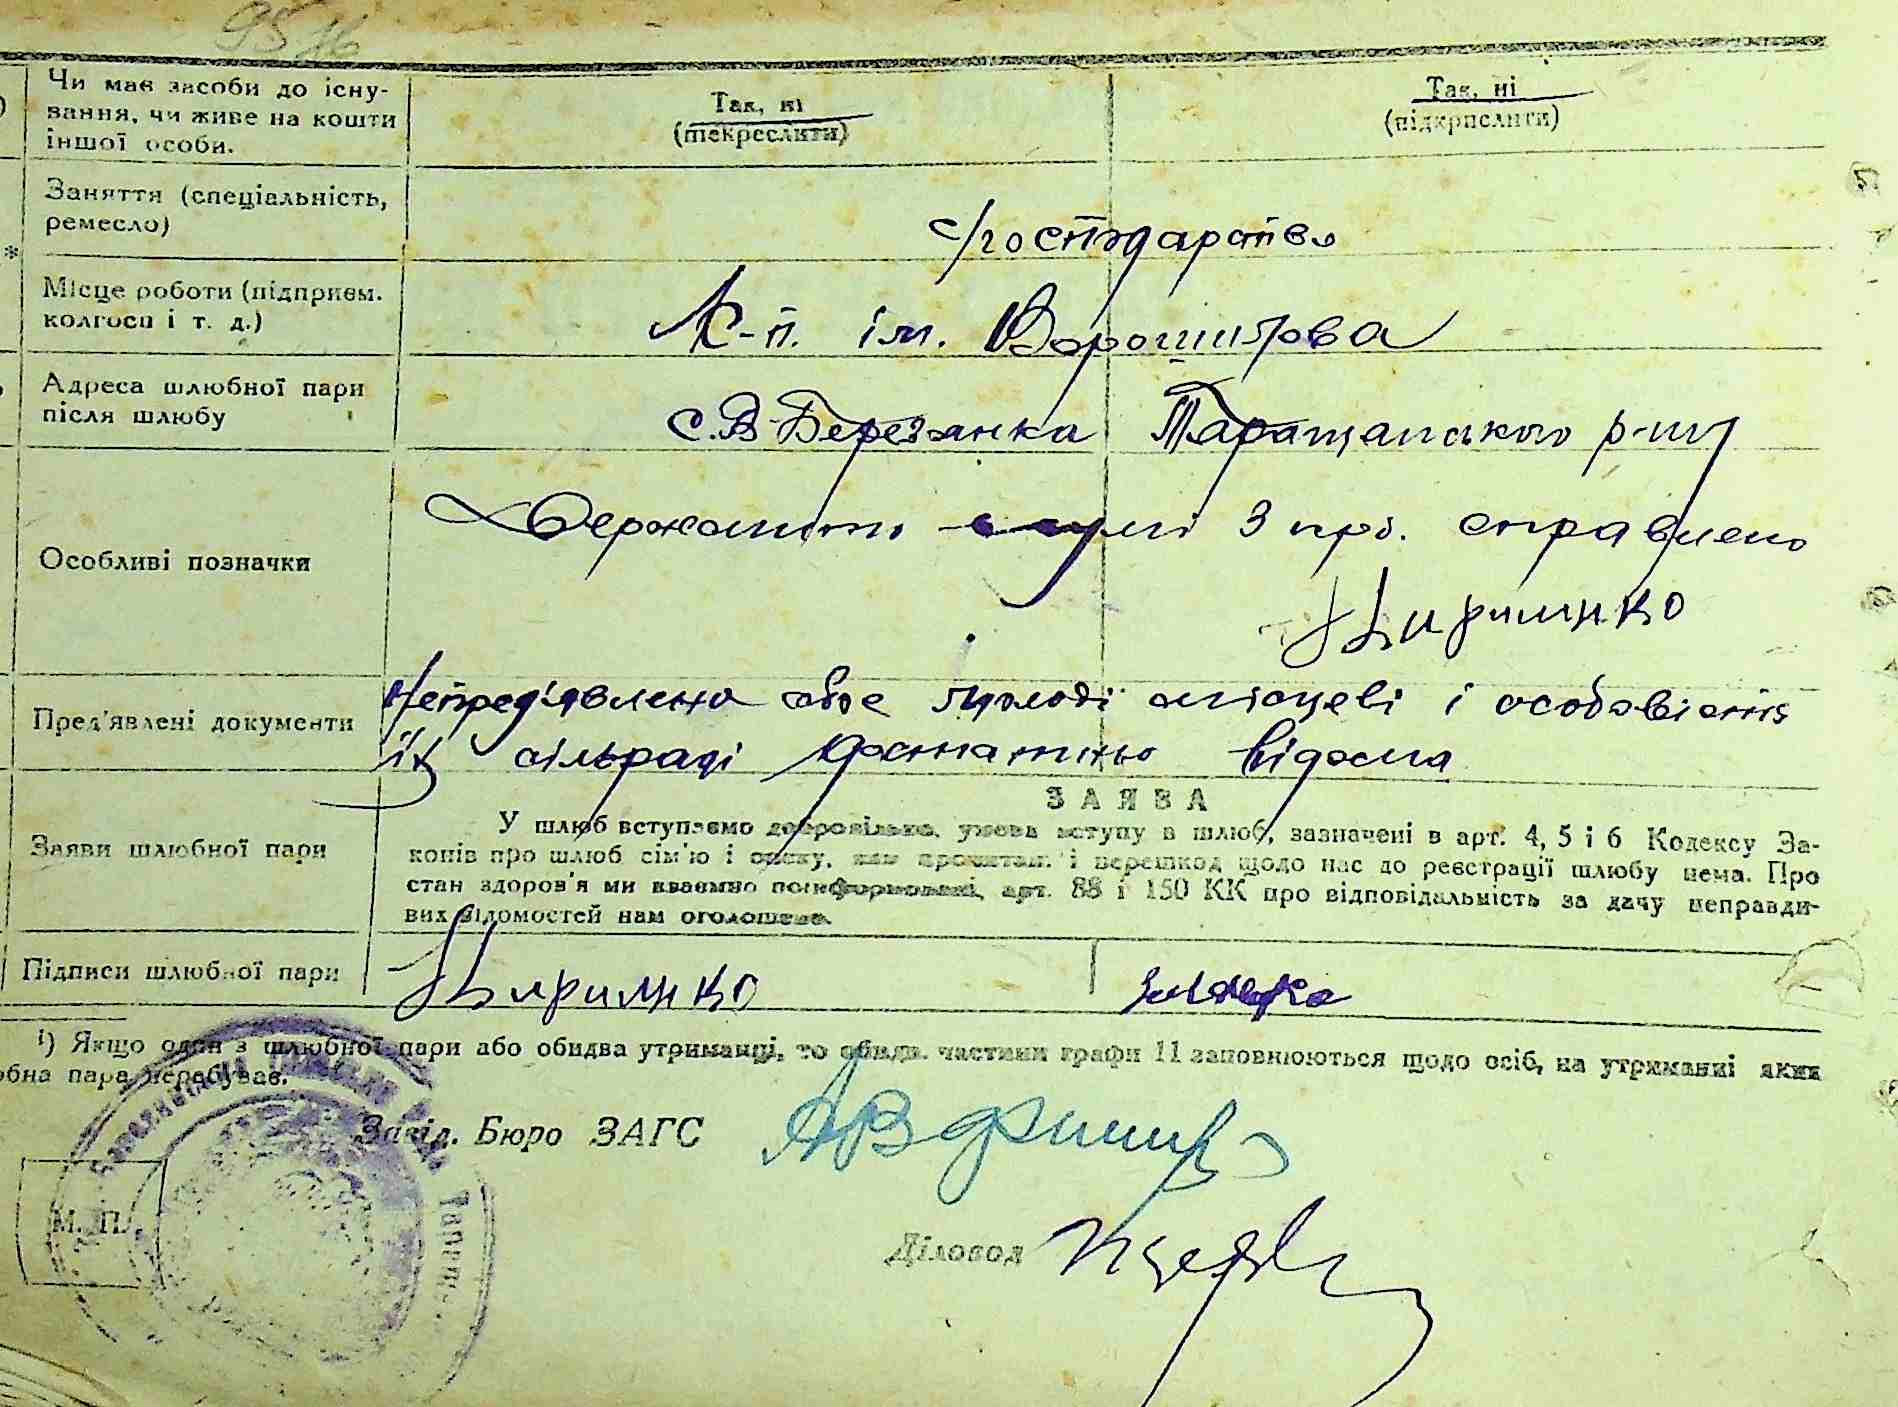 95
Чи має засоби до існу-
вання, чи живе на кошти
іншої особи.
Так, ні
Так, ні
(підкреслити)
Заняття (спеціальність,
ремесло)
с/господарство
Місце роботи (підприєм.
колгосп і т. д.)
К-п. ім. Ворошилова
Адреса шлюбної пари
після шлюбу
с. В-Березанка Таращанського р-ну
Особливі позначки
Держмито в сумі 3 крб. справлено
Кириленко
Пред'явлені документи
Непред'явлено обоє молоді місцеві і особовість
їх сільраді відома
Заяви шлюбної пари
ЗАЯВА
У шлюб вступаємо добровільно, умови вступу в шлюб, зазначені в арт. 4, 5 і 6 Кодексу За-
конів про шлюб сім'ю і опіку, нам прочитані і перешкод щодо нас до реєстрації шлюбу нема. Про
стан здоров'я ми взаємно поінформовані, арт. 88 і 150 КК про відповідальність за дачу неправди-
вих відомостей нам оголошено.
Підписи шлюбної пари
Кириленко
¹) Якщо один з шлюбної пари або обидва утриманці, то обидві частини графи 11 заповнюються щодо осіб, на утриманні яких
обна пара перебуває.
Завід. Бюро ЗАГС
М. П.
Діловод